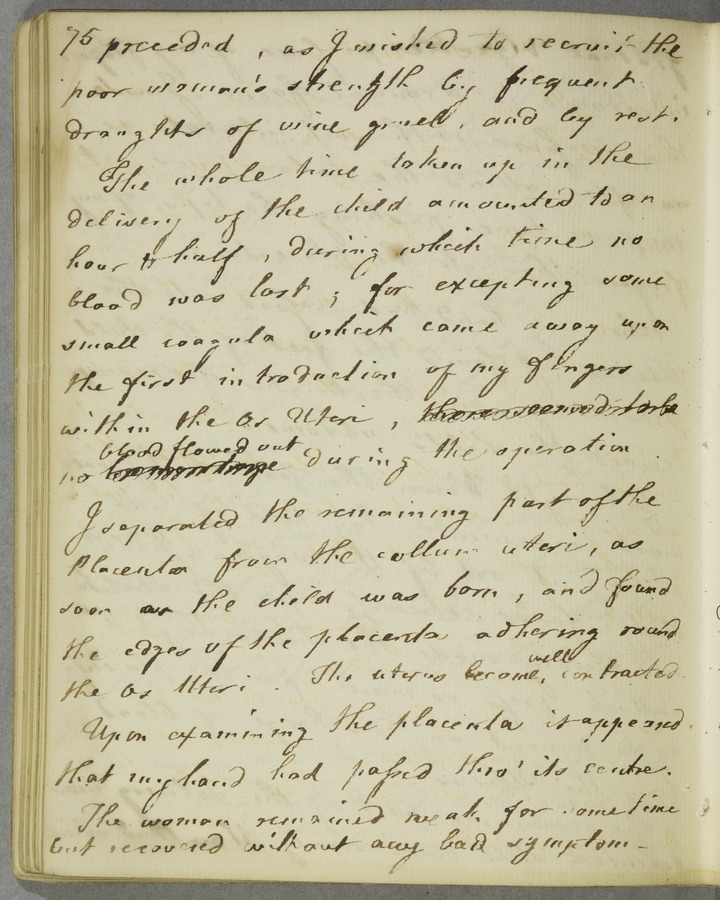 75 preceded, as I wished to recruit the
poor woman's strength by frequent
draughts of wine gruel, and by rest.
The whole time taken up in the
delivery of the child amounted to an
hour & half, during which time no
blood was lost; for excepting some
small coagula which came away upon
the first introduction of my fingers
within the Os Uteri, there seemed to be
blood flowed out
no hemorrhage during the operation.
I separated the remaining part of the
Placenta from the collum uteri, as
soon as the child was born, and found
the edges of the placenta adhering round
well
the Os Uteri. The uterus became, contracted.
Upon examining the placenta it appeared
that my hand had passed thro' its centre.
The woman remained weak for some time
but recovered without any bad symptom-